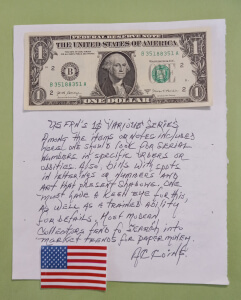 FEDERAL RESERVE NOTE
THE UNITED STATES OF AMERICA
B 35158351 A
B 35158351 A
ONE DOLLAR
"US FRN'S 1$ VARIOUS SERIES
AMONG THE ITEMS OR NOTES INCLUDED
HERE WE SHOULD LOOK FOR SERIAL
NUMBERS IN SPECIFIC ORDERS OR
ODDITIES ALSO, BILLS WITH SPOTS
IN LETTERINGS OR NUMBERS AND
ART THAT PRESENT SHADOWS. ONE
MUST HAVE A KEEN EYE FOR THIS,
AS WELL AS A TRAINED ABILITY
FOR DETAILS, MOST MODERN
COLLECTORS TEND TO SEARCH INTO
MARKET TRENDS FOR PAPER MONEY.